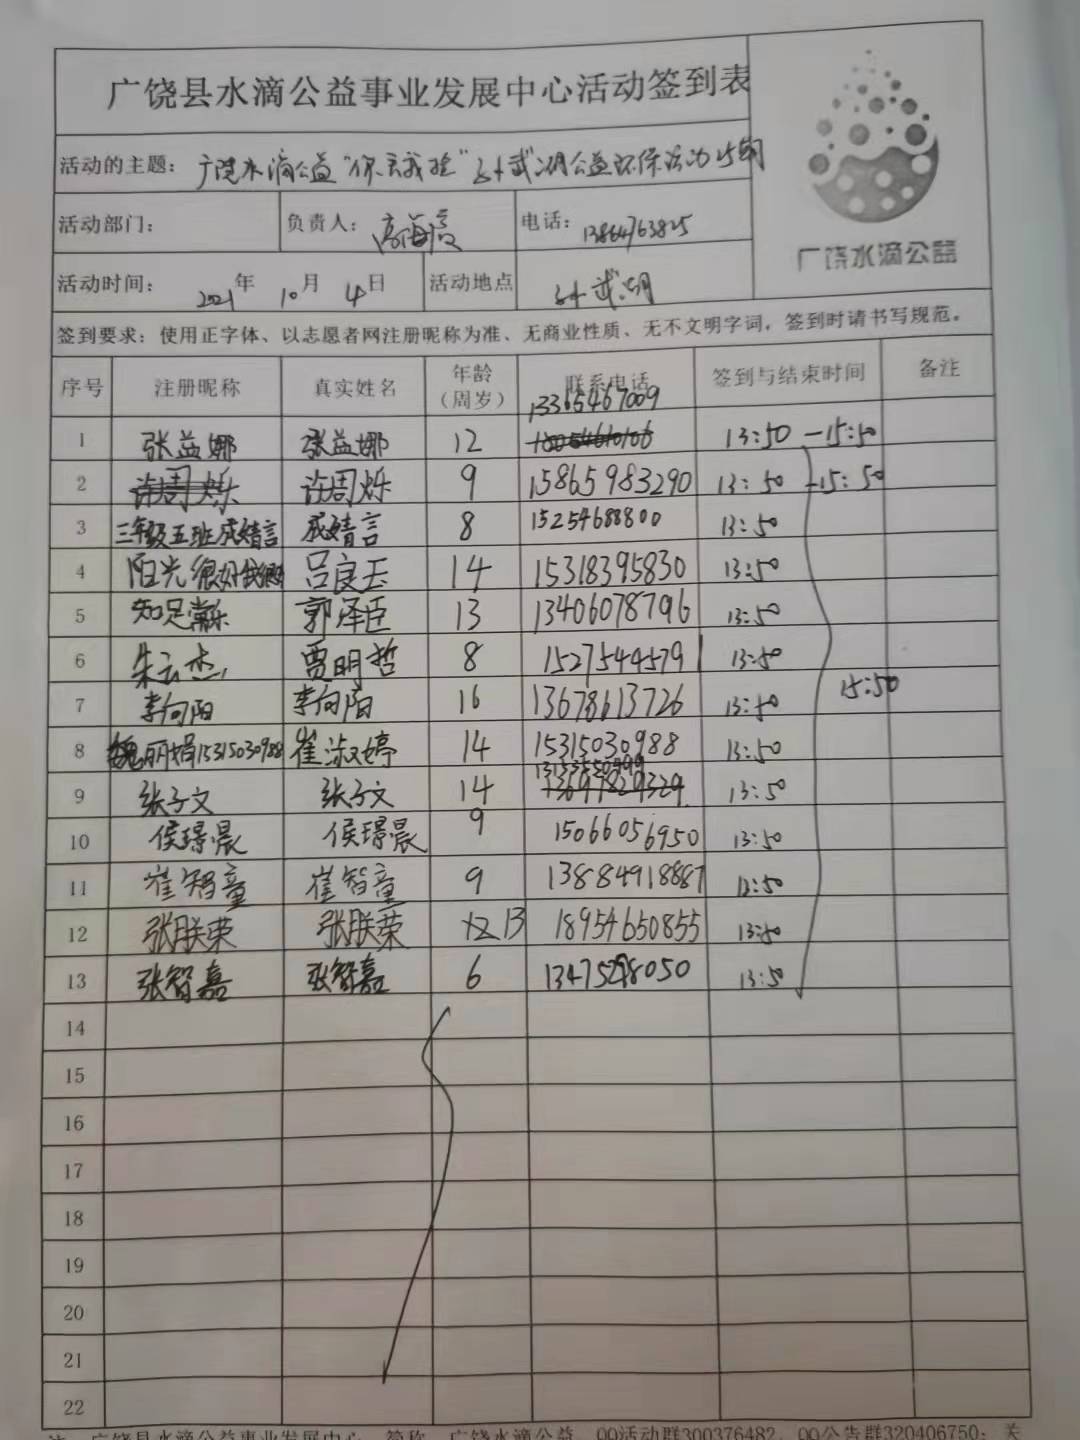 广饶县水滴公益事业发展中心活动签到表
活动的主题: 广饶水滴公益"你言我拾"孙武湖公益环保活动15期
广饶水滴公益
活动部门: 负责人: 电话: 13864763825
活动时间: 2021年 10月 4日 活动地点 孙武湖
签到要求: 使用正字体、以志愿者网注册昵称为准、无商业性质、无不文明字词, 签到时请书写规范。
序号 注册昵称 真实姓名 年龄(周岁) 联系电话 签到与结束时间 备注
13365467009
1 张益娜 张益娜 12 13:50 -15:50
2 许周烁 许周烁 9 15865983290 13:50 -15:50
3 三年级五班成婧言 成婧言 8 15254688800 13:50
4 阳光很好 吕良玉 14 15318395830 13:50
5 知足常乐 郭泽臣 13 13406078796 13:50
6 朱云杰 贾明哲 8 15275449791 13:50
7 李向阳 李向阳 16 13678613726 13:50 15:50
8 魏丽娟15315030988 崔淑婷 14 15315030988 13:50
9 张子文 张子文 14 13697829329 13:50
10 侯璟晨 侯璟晨 9 15066056950 13:50
11 崔智童 崔智童 9 13884918887 13:50
12 张朕荣 张朕荣 13 18954650855 13:50
13 张智嘉 张智嘉 6 13475298050 13:50
14
15
16
17
18
19
20
21
22
注: 广饶县水滴公益事业发展中心, 简称: 广饶水滴公益, QQ活动群300376482, QQ公告群320406750; 关